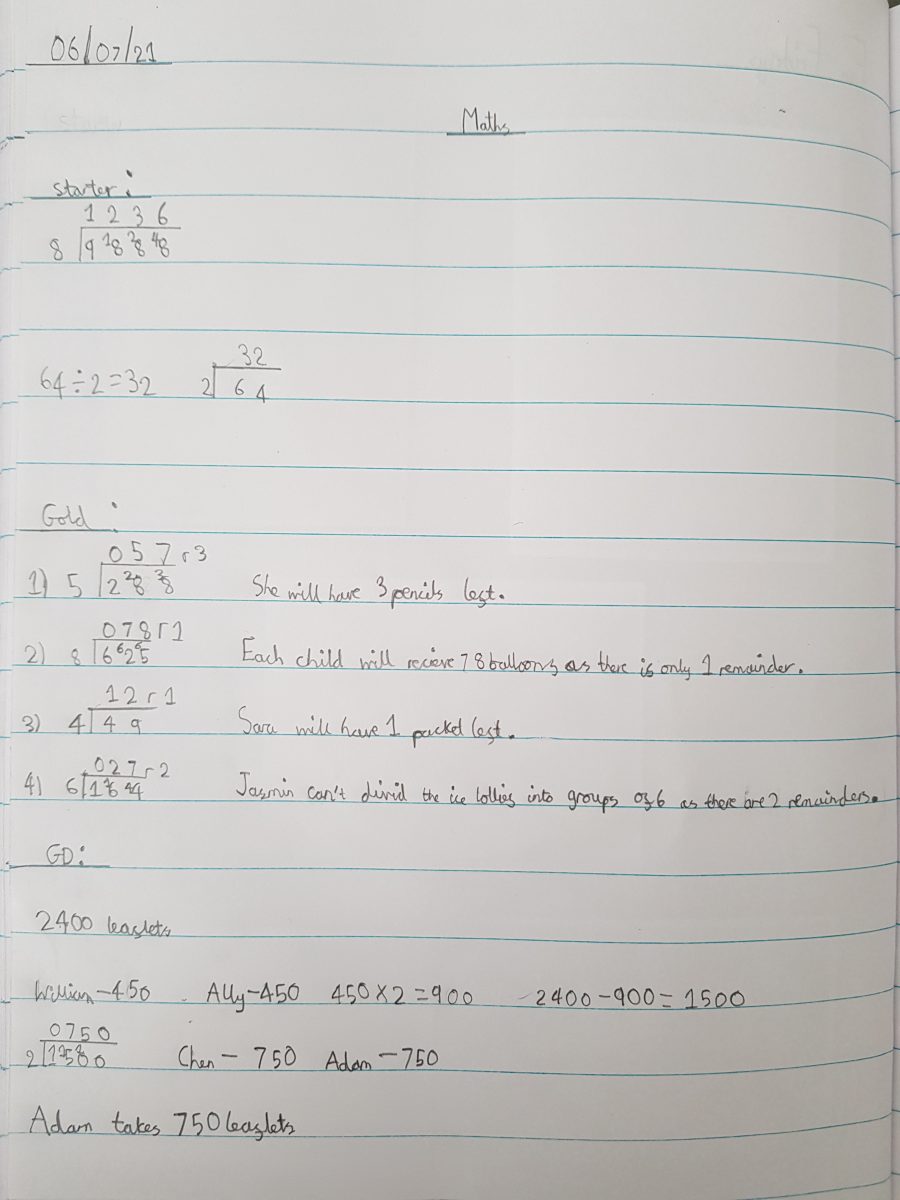 06/07/21
Maths
Starter:
1 2 3 6
8 9 18 28 48
64÷2=32
32
2 6 4
Gold:
0 5 7 r3
1) 5 2 28 38 She will have 3 pencils left.
0 7 8 r 1
2) 8 6 62 65 Each child will recieve 78 balloons as there is only 1 remainder.
1 2 r 1
3) 4 4 9 Sara will have 1 packet left.
0 2 7 r 2
4) 6 1 16 44 Jasmin can't divid the ice lollies into groups of 6 as there are 2 remainders.
GD:
2400 leaflets
William-450 Ally-450 450×2=900 2400-900=1500
0750
2 1 15 0 Chen- 750 Adam-750
Adam takes 750 leaflets